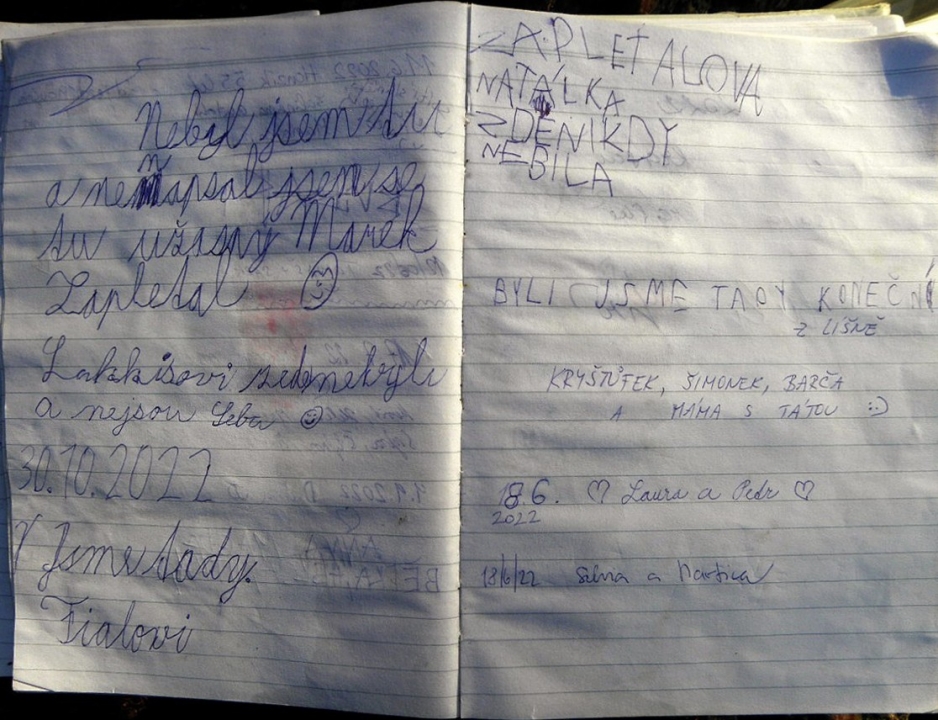 Nebyl jsem tu
a nenapsal jsem se
tu užasný Marek
Zapletal
Lakkisovi zde nebyli
a nejsou Seba
30.10.2022
Jsme tady.
Fialovi
ZAPLETALOVA
NATÁLKA
ZDE NIKDY
NEBILA
BYLI JSME TADY KONEČNÍ
Z LÍŠNĚ
KRYŠTŮFEK, ŠIMONEK, BARČA
A MÁMA S TÁTOU :-)
18.6. ♡ Laura a Petr ♡
2022
18/6/22 a